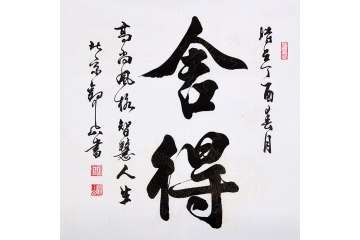 時在丁酉春月
舍得
高尚風格智慧人生
北京
書